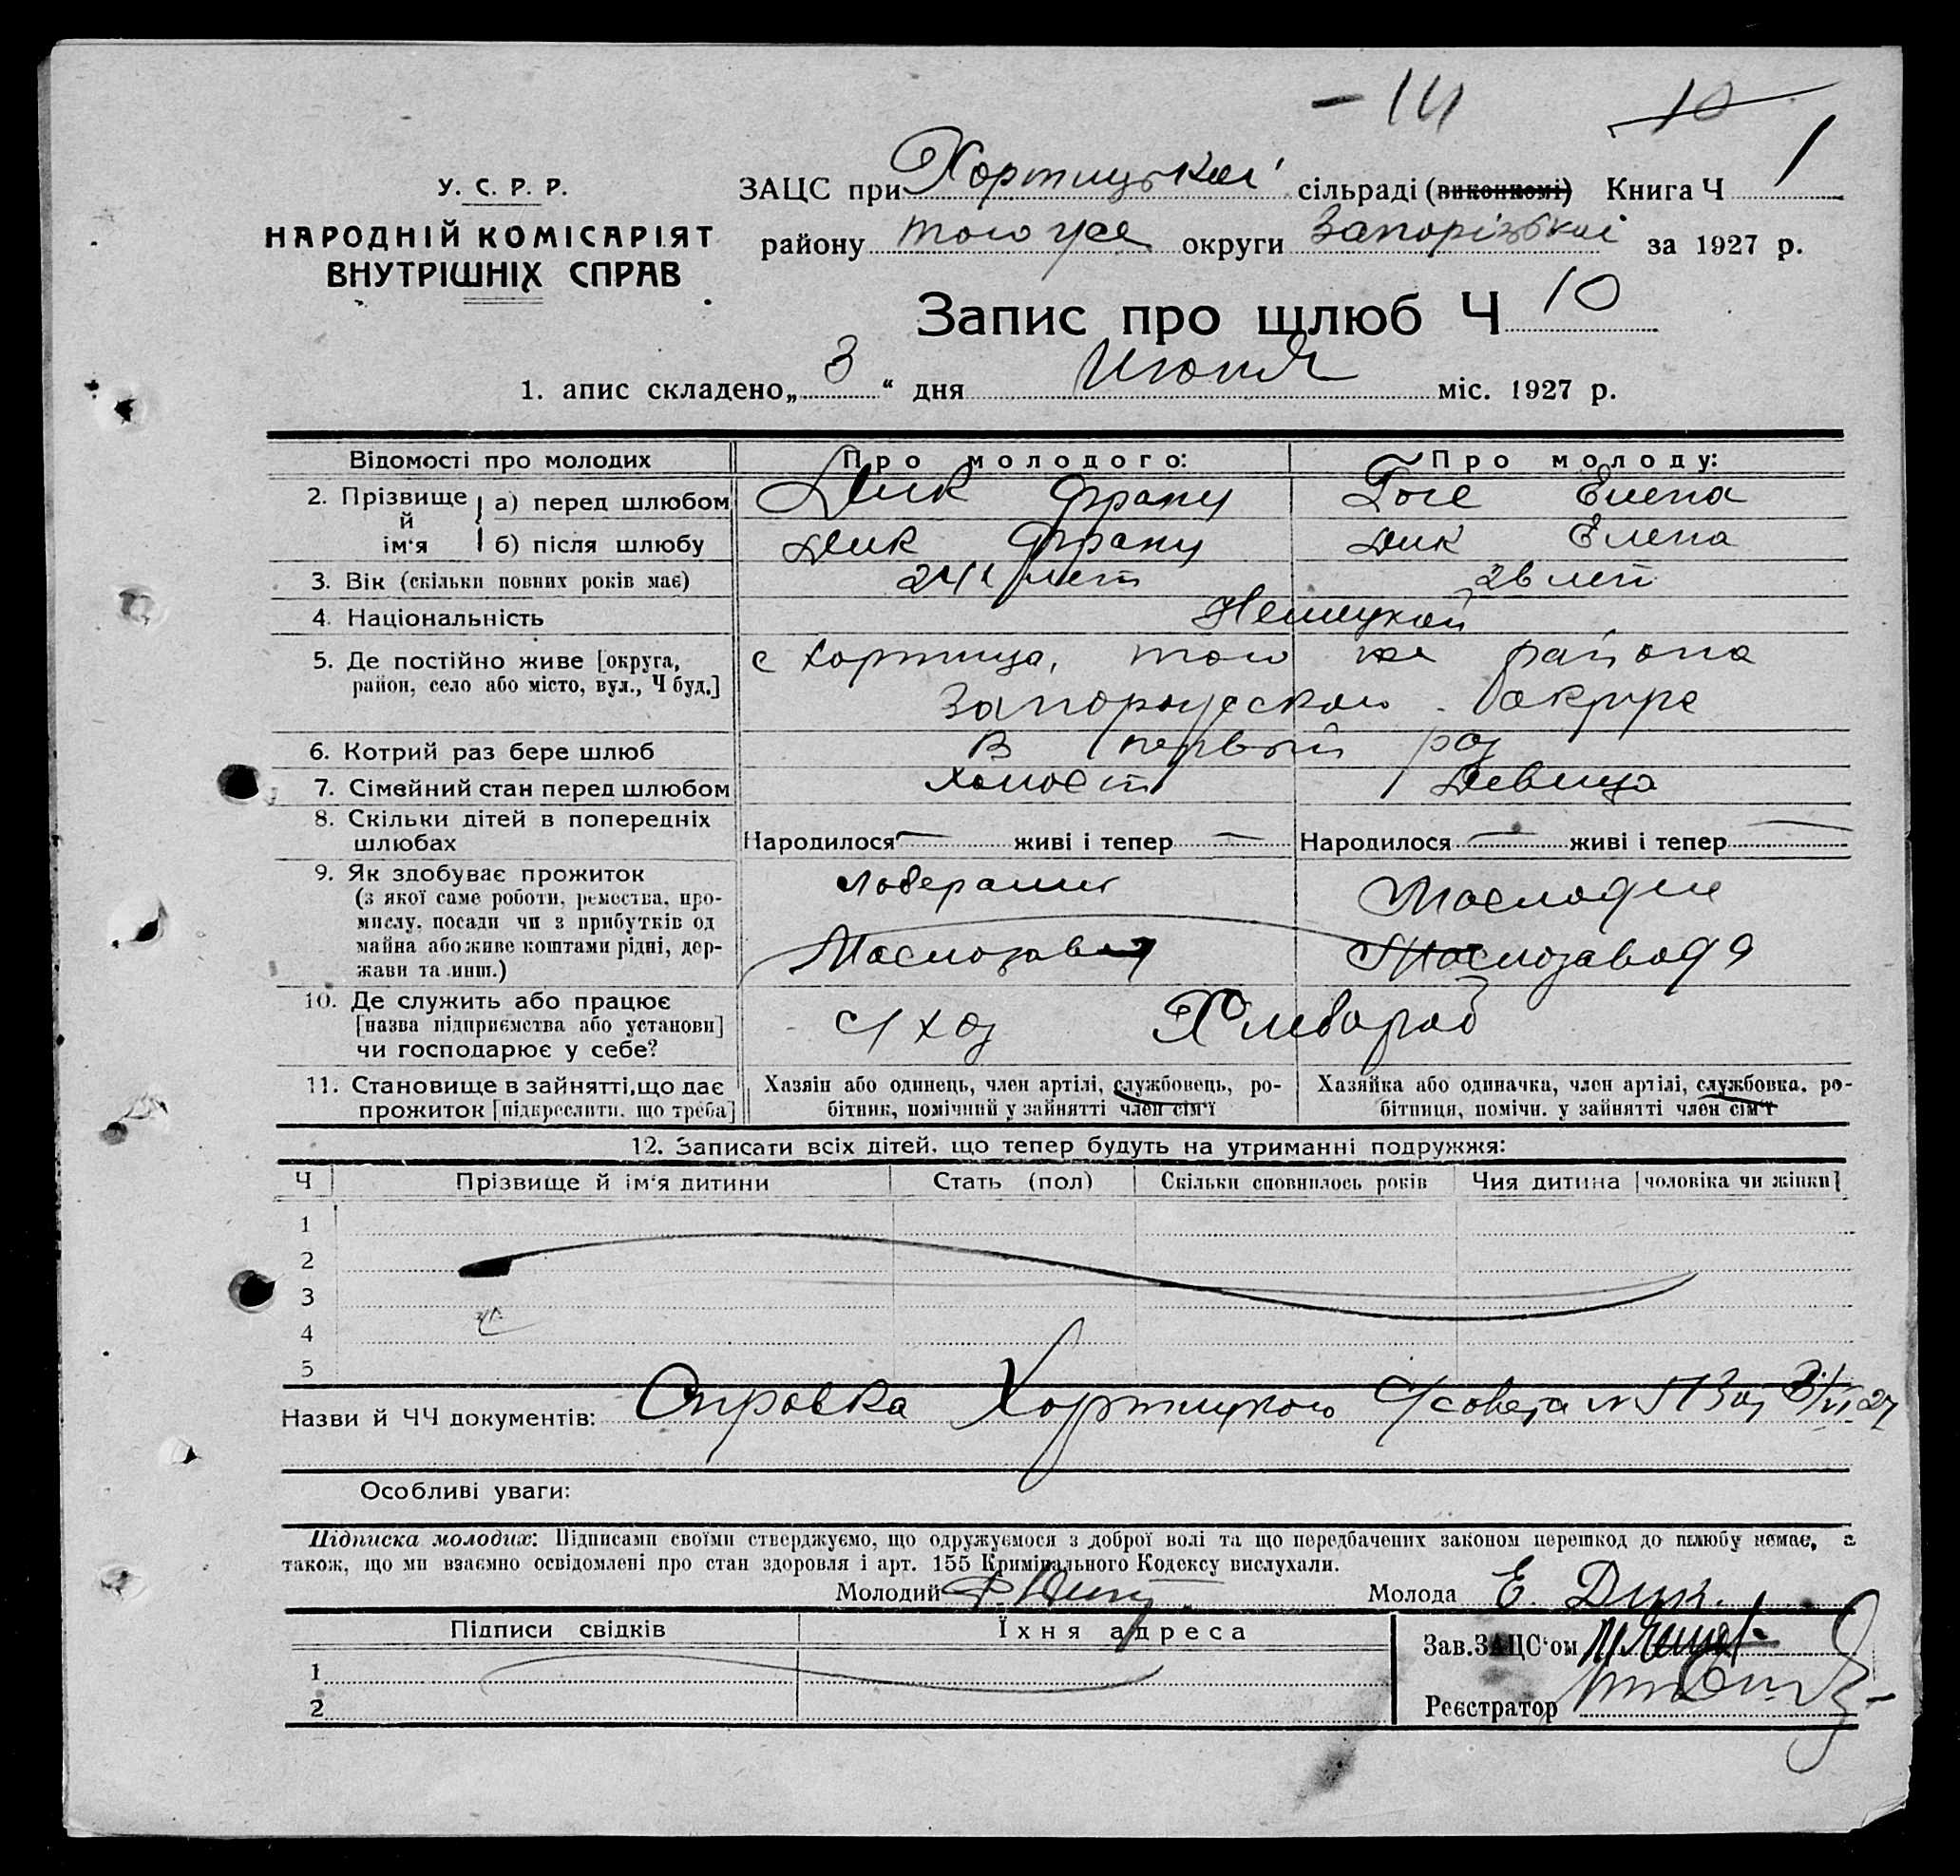 - 14 10
У. С. Р. Р.
НАРОДНІЙ КОМІСАРІЯТ
ВНУТРІШНІХ СПРАВ
ЗАЦС при Хортицької сільраді (виконкомі) Книга Ч 1
району того же округи Запорізької за 1927 р.
Запис про шлюб Ч 10
1. апис складено „ 3 “ дня Июня міс. 1927 р.
Відомості про молодих Про молодого: Про молоду:
2. Прізвище й ім'я
а) перед шлюбом Дик Франц Елена
б) після шлюбу Дик Франц Дик Елена
3. Вік (скільки повних років має) 24 лет 26 лет
4. Національність Немецкой
5. Де постійно живе [округа, с Хортица, того же района
район, село або місто, вул., Ч буд.] Запорожского округе
6. Котрий раз бере шлюб В первый раз
7. Сімейний стан перед шлюбом Холост Девица
8. Скільки дітей в попередніх
шлюбах Народилося — живі і тепер — Народилося — живі і тепер —
9. Як здобуває прожиток
(з якої саме роботи, ремества, про-
мислу, посади чи з прибутків од
майна або живе коштами рідні, дер-
жави та инш.)
Маслозавод Маслозавода
10. Де служить або працює
[назва підприємства або установи]
чи господарює у себе?
с/хоз
11. Становище в зайнятті, що дає Хазяін або одинець, член артілі, службовець, ро- Хазяйка або одиначка, член артілі, службовка, ро-
прожиток [підкреслити, що треба] бітник, помічний у зайнятті член сім'ї бітниця, помічн. у зайнятті член сім'ї
12. Записати всіх дітей, що тепер будуть на утриманні подружжя:
Ч Прізвище й ім'я дитини Стать (пол) Скільки сповнилось років Чия дитина [чоловіка чи жінки]
1
2
3
4
5
Назви й ЧЧ документів: Справка Хортицкого с/совета
Особливі уваги:
Підписка молодих: Підписами своїми стверджуємо, що одружуємося з доброї волі та що передбачених законом перешкод до шлюбу немає, а
також, що ми взаємно освідомлені про стан здоровля і арт. 155 Кримінального Кодексу вислухали.
Молодий Молода Е. Дик.
Підписи свідків Їхня адреса
1
2
Зав. ЗАЦС'ом
Реєстратор